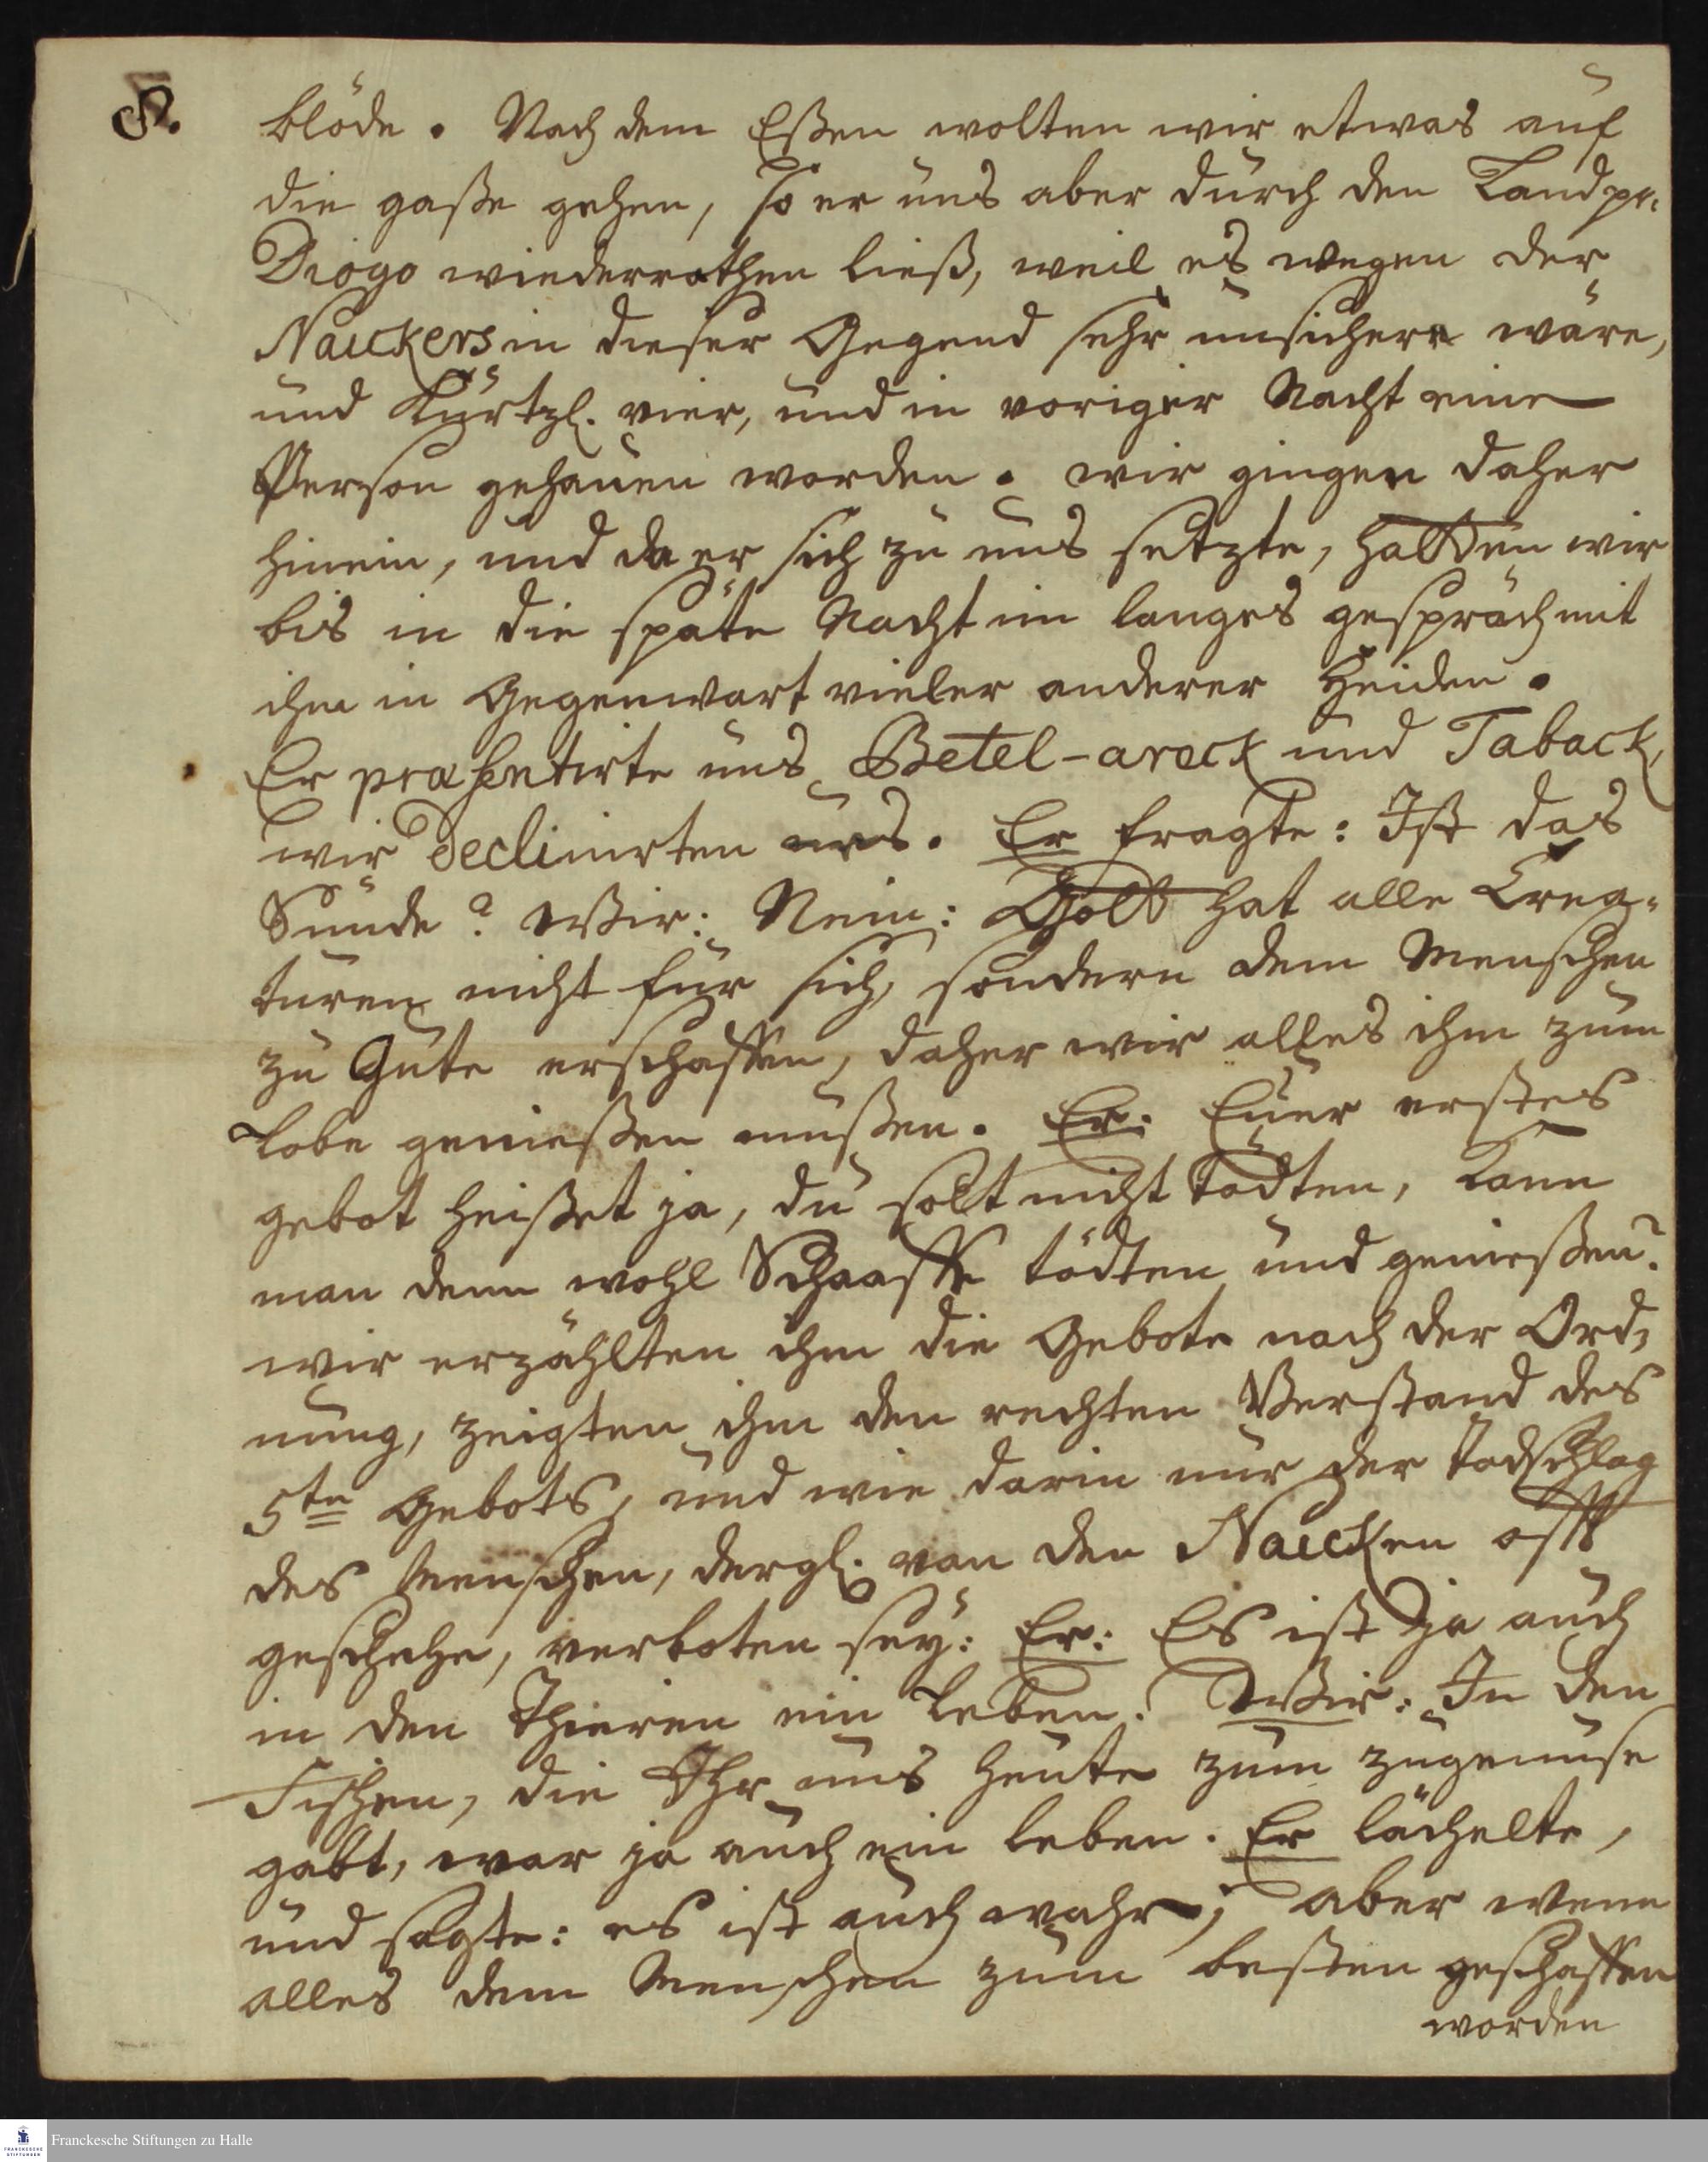 S.
blöde. Nach dem Eßen wolten wir etwas auf
die gaße gehen, so er uns aber durch den Landpr.
Diogo wiederrathen ließ, weil es wegen der
Naickers in dieser Gegend sehr unsicher wäre,
und Kürtzl. vier, und in voriger Nacht eine
Person gehauen worden. wir gingen daher
hinein, und da er sich zu uns setzte, hatten wir
bis in die späte Nacht ein langes gespräch mit
ihm in Gegenwart vieler anderer Heiden.
Er præsentirte uns Betel-areck und Taback,
wir declinirten es. Er fragte: Ist das
Sünde? Wir: Nein: Gott hat alle Crea-
turen nicht für sich, sondern dem Menschen
zu Gute erschaffen, daher wir alles ihm zum
Lobe genießen müßen. Er: Euer erstes
gebot heißet ja, du solt nicht tödten, kann
man denn wohl Schaaffe tödten und genießen?
wir erzählten ihm die Gebote nach der Ord-
nung, zeigten ihm den rechten Verstand des
5ten Gebots, und wie darin nur der Todschlag
des Menschen, dergl. von den Naicken offt
geschehe, verboten sey: Er: Es ist ja auch
in den Thieren ein Leben. Wir: In den
Fischen, die Ihr uns heute zum zugemüse
gabt, war ja auch ein Leben. Er lächelte,
und sagte: es ist auch wahr; aber wenn
alles dem Menschen zum besten geschaffen
worden
Franckesche Stiftungen zu Halle